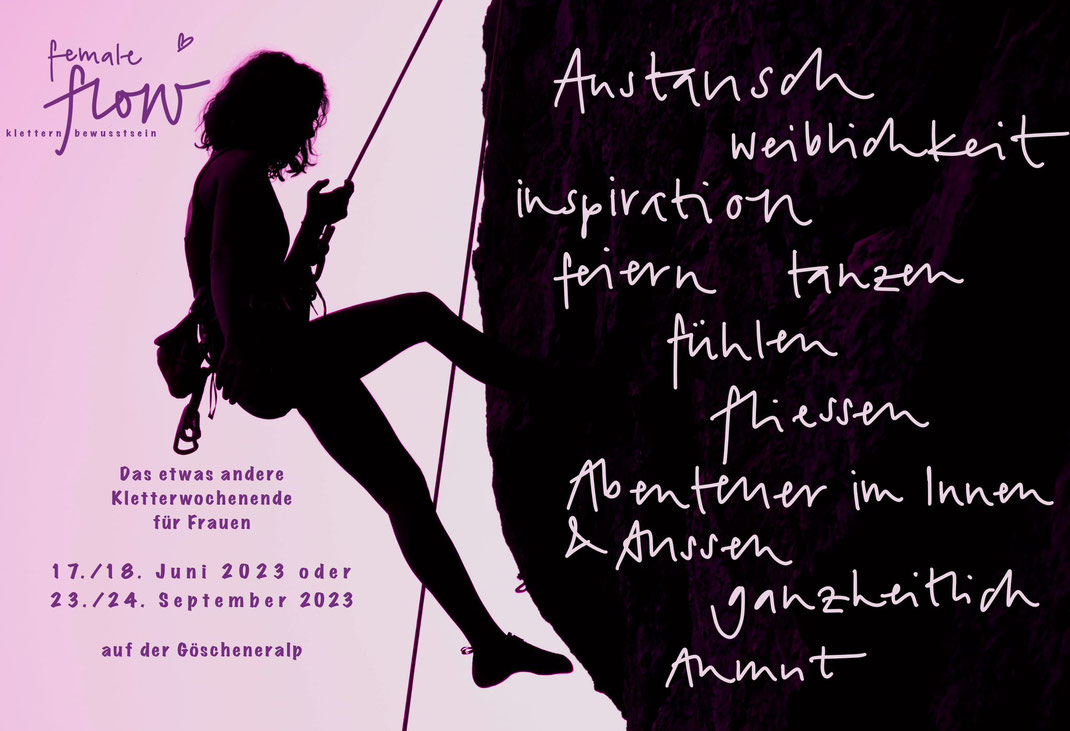 female
flow
klettern bewusstsein
Das etwas andere
Kletterwochenende
für Frauen
17./18. Juni 2023 oder
23./24. September 2023
auf der Göscheneralp
Austausch
weiblichkeit
inspiration
feiern tanzen
fühlen
fliessen
Abenteuer im Innen
& Aussen
ganzheitlich
Anmut